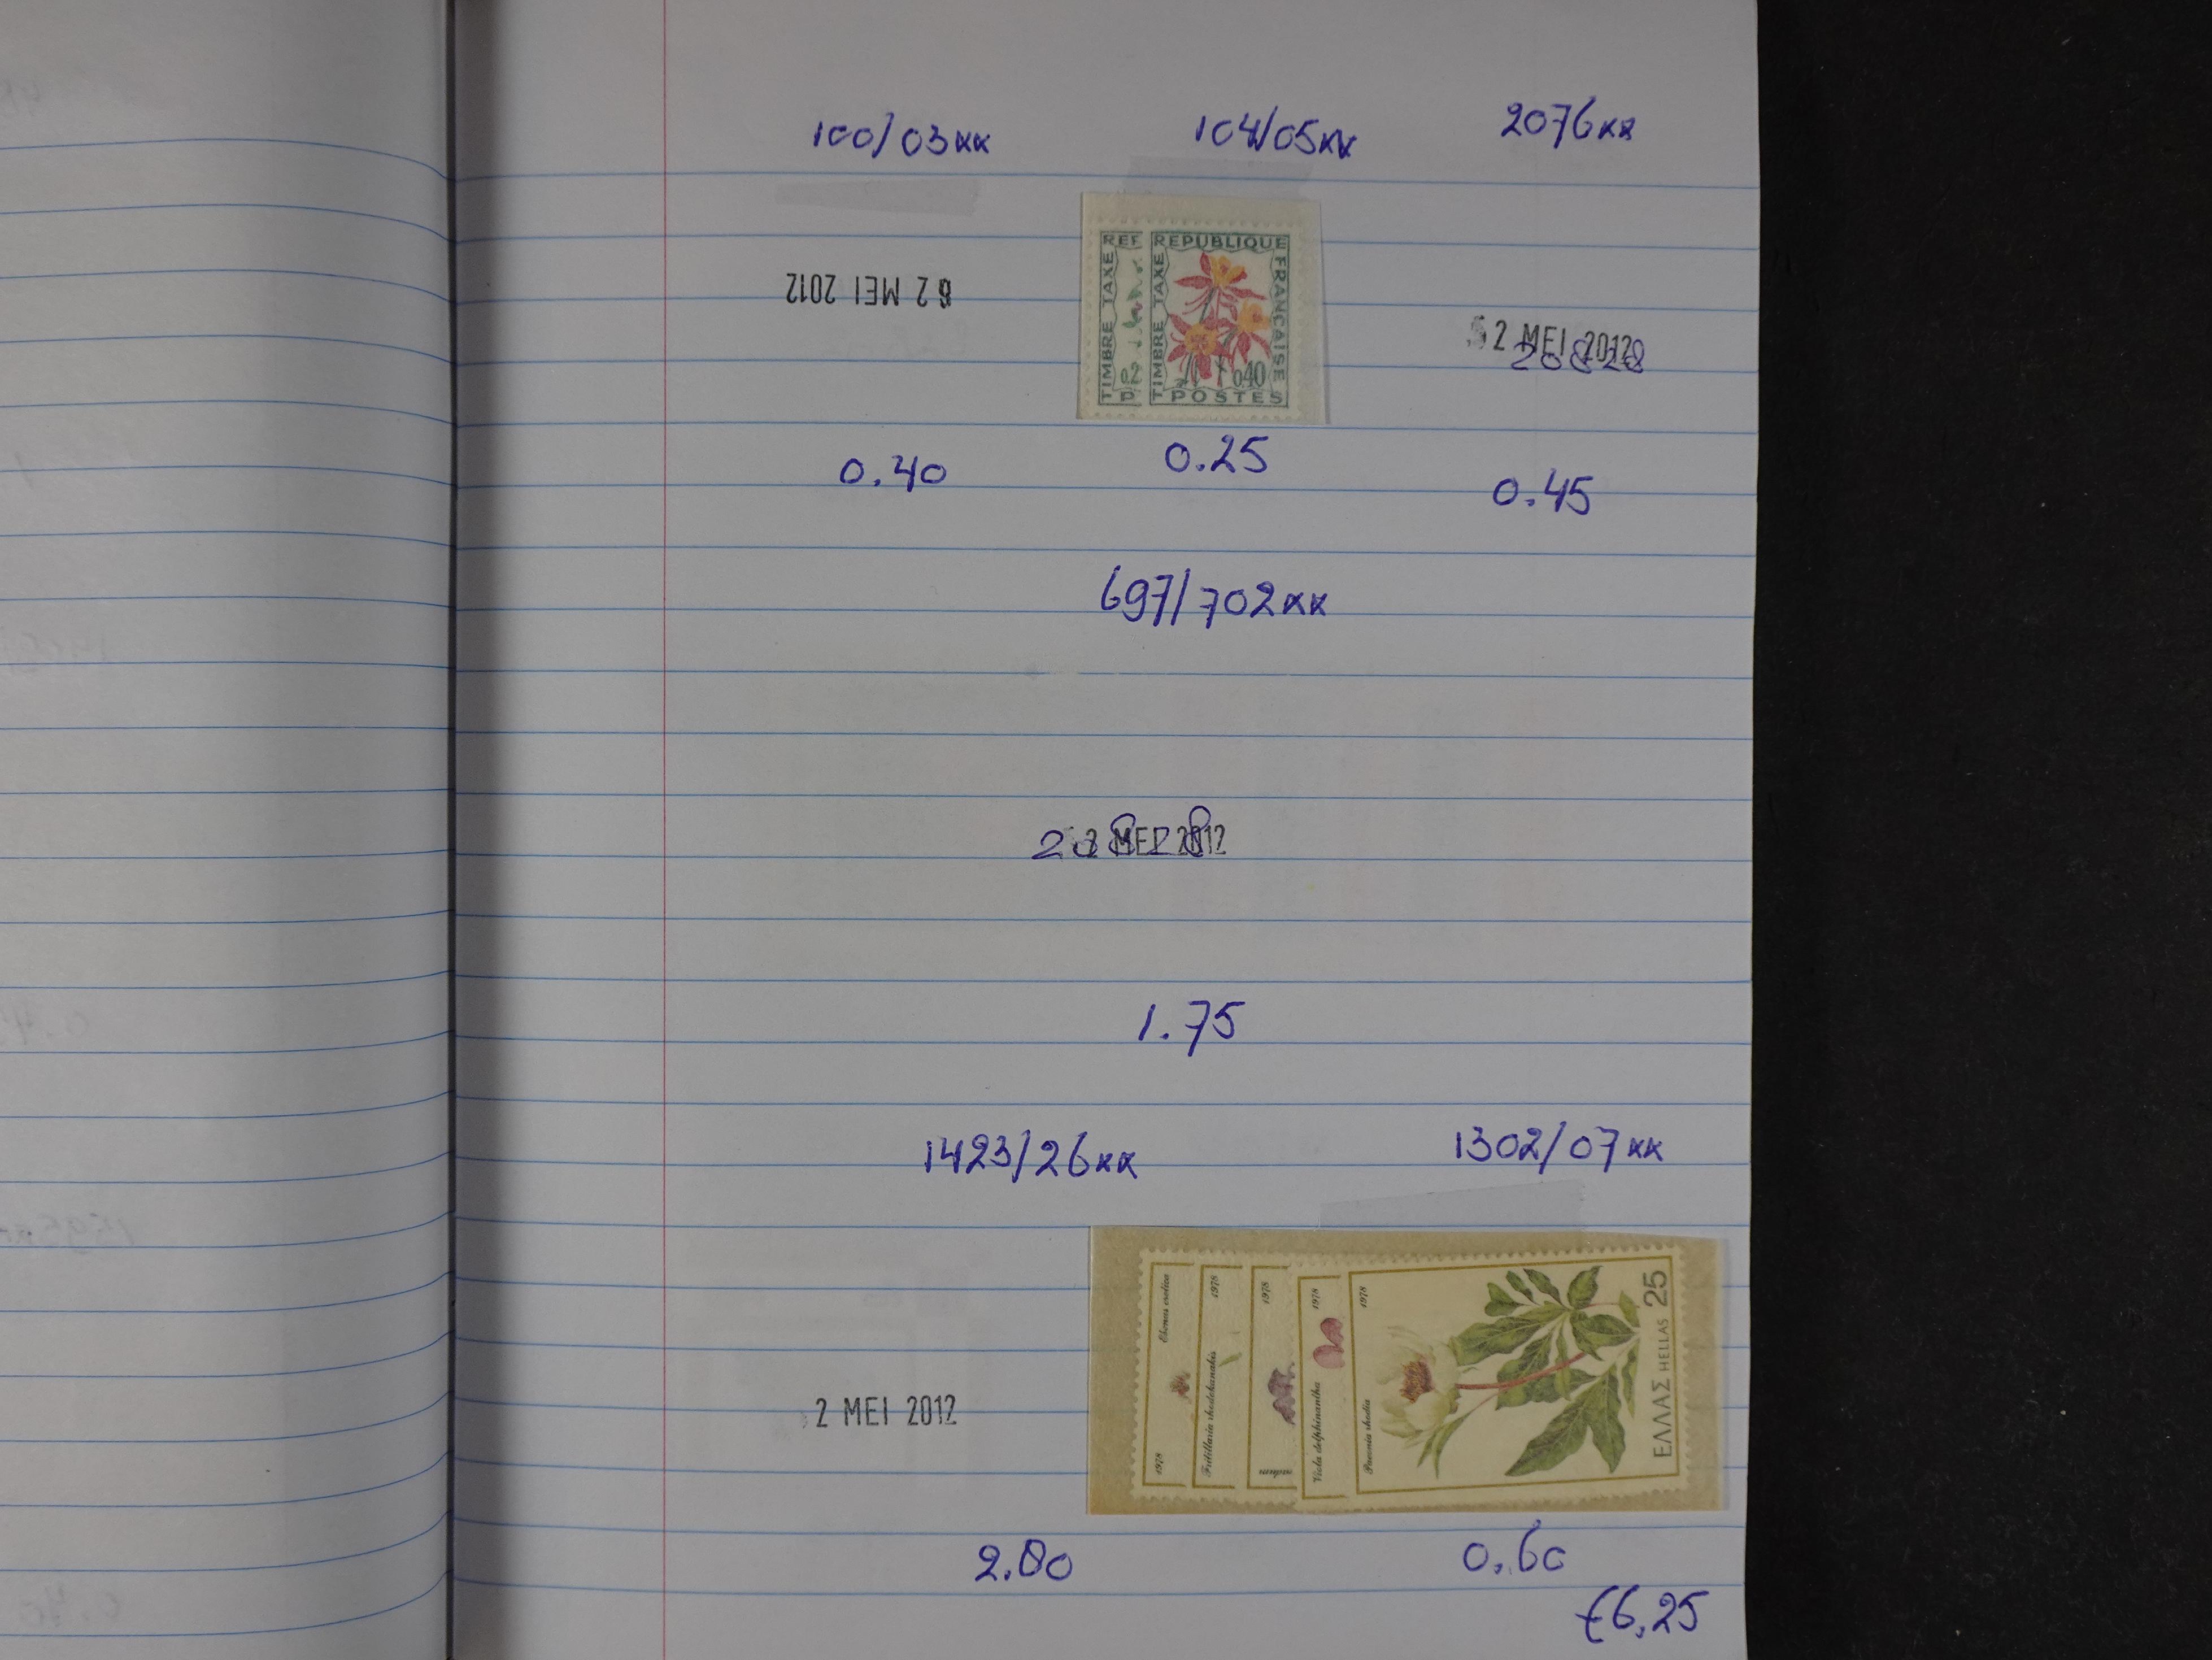 100/03xx 104/05xx 2076xx
REF
TIMBRE TAXE
P
REPUBLIQUE
FRANÇAISE
TIMBRE TAXE
0,40
POSTES
2 MEI 2012
2 MEI 2012
20828
0.40 0.25 0.45
697/702xx
2 MEI 2012
1.75
1423/26xx 1302/07xx
1978
Ebenus cretica
Fritillaria rhodokanakis
1978
1978
Viola delphinantha
1978
Paeonia rhodia
1978
ΕΛΛΑΣ HELLAS 25
2 MEI 2012
2.80 0.60
€6,25